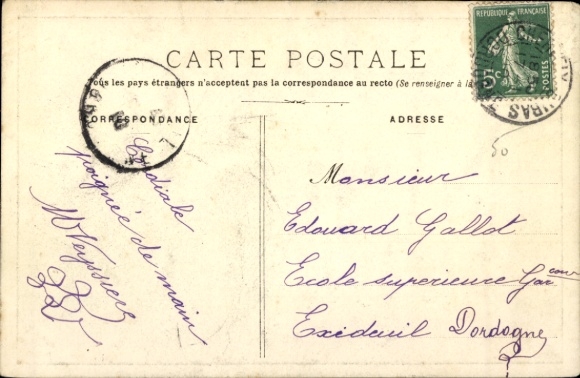 RÉPUBLIQUE FRANÇAISE
5c
POSTES
CARTE POSTALE
Tous les pays étrangers n'acceptent pas la correspondance au recto (Se renseigner à la
CORRESPONDANCE
ADRESSE
50
Cordiale
poignée de main
M Veyssiere
Monsieur
Edouard Gallot
Ecole superieure Gar
Exideuil Dordogne